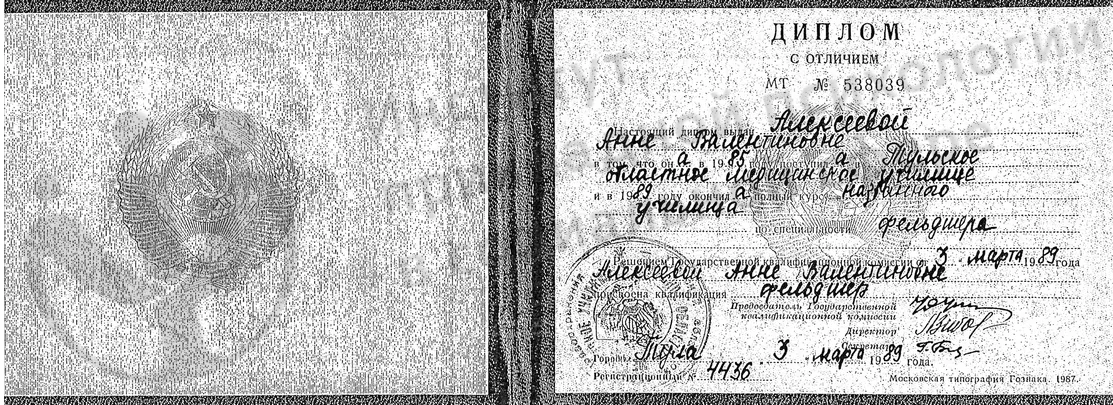 ДИПЛОМ
С ОТЛИЧИЕМ
МТ № 538039
Настоящий диплом выдан Алексеевой
Анне Валентиновне
в том, что он а в 1985 году поступил а в Тульское
областное медицинское училище
и в 1989 году окончил а полный курс названного
училища
по специальности фельдшера
Решением Государственной квалификационной комиссии от 3 марта 1989 года
Алексеевой Анне Валентиновне
присвоена квалификация фельдшер
Председатель Государственной
квалификационной комиссии
Директор
Секретарь
Город Тула 3 марта 1989 года.
Регистрационный № 4436
Московская типография Гознака. 1987.